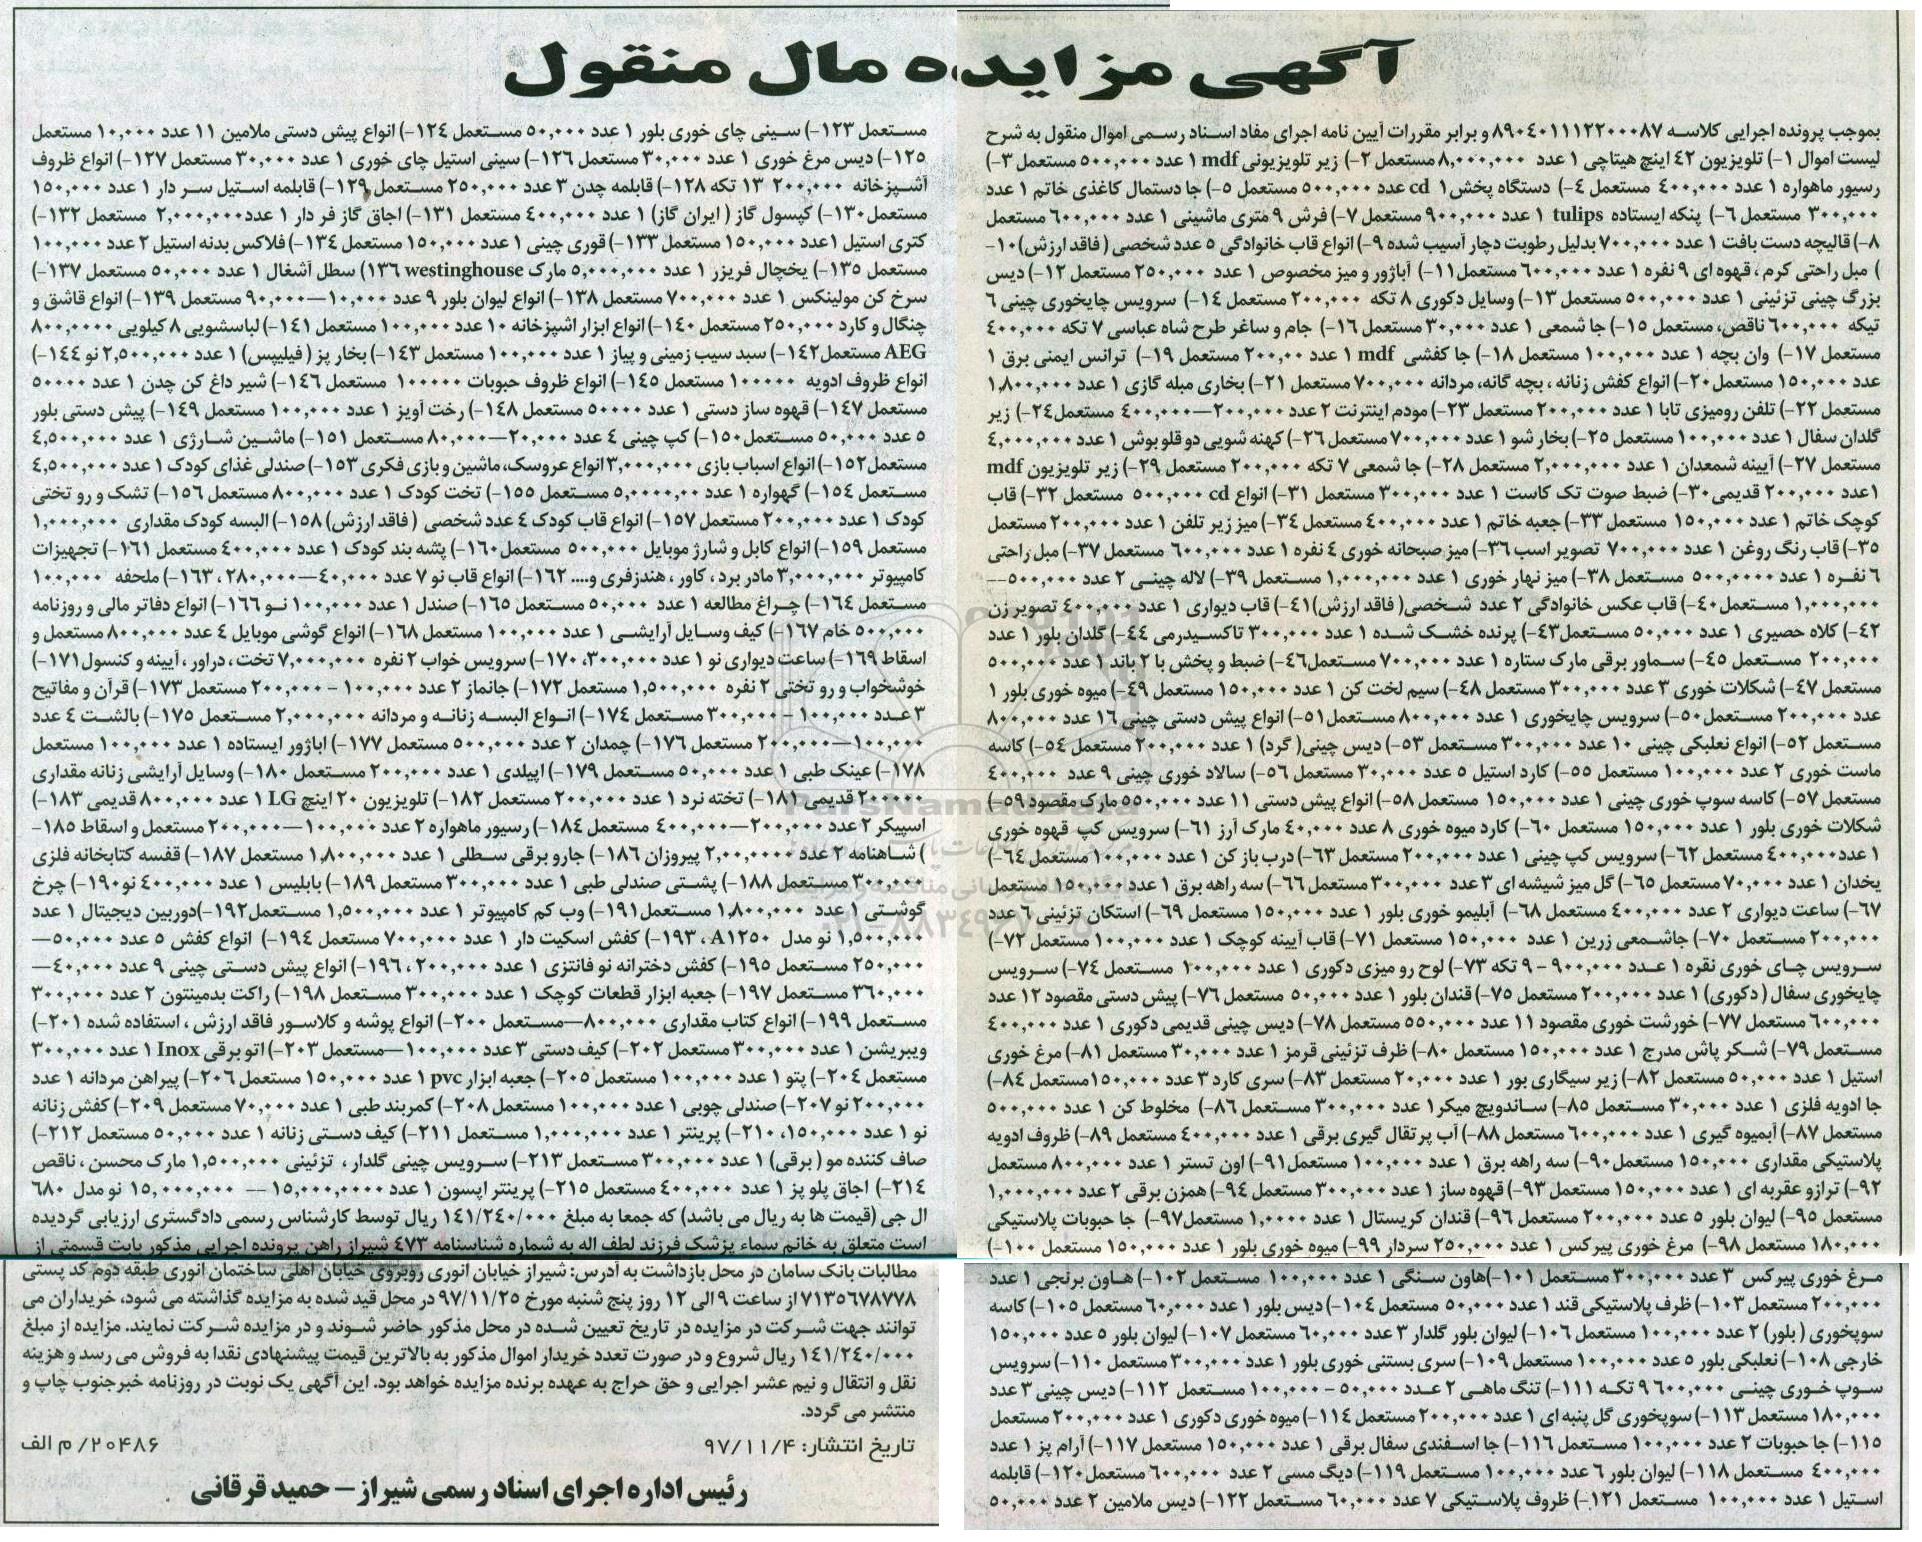 آگهی مزایده مال منقول
بموجب پرونده اجرایی کلاسه ۸۹۰۴۰۱۱۱۲۲۰۰۰۸۷ و برابر مقررات آیین نامه اجرای مفاد اسناد رسمی اموال منقول به شرح
لیست اموال ۱-) تلویزیون ۴۲ اینچ هیتاچی ۱ عدد ۸,۰۰۰,۰۰۰ مستعمل ۲-) زیر تلویزیونی mdf ۱ عدد ۵۰۰,۰۰۰ مستعمل ۳-)
رسیور ماهواره ۱ عدد ۴۰۰,۰۰۰ مستعمل ۴-) دستگاه پخش cd ۱ عدد ۵۰۰,۰۰۰ مستعمل ۵-) جا دستمال کاغذی خاتم ۱ عدد
۳۰۰,۰۰۰ مستعمل ۶-) پنکه ایستاده tulips ۱ عدد ۹۰۰,۰۰۰ مستعمل ۷-) فرش ۹ متری ماشینی ۱ عدد ۶۰۰,۰۰۰ مستعمل
۸-) قالیچه دست بافت ۱ عدد ۷۰۰,۰۰۰ بدلیل رطوبت دچار آسیب شده ۹-) انواع قاب خانوادگی ۵ عدد شخصی ( فاقد ارزش) ۱۰-
) مبل راحتی کرم ، قهوه ای ۹ نفره ۱ عدد ۶۰۰,۰۰۰ مستعمل ۱۱-) آباژور و میز مخصوص ۱ عدد ۲۵۰,۰۰۰ مستعمل ۱۲-) دیس
بزرگ چینی تزئینی ۱ عدد ۵۰۰,۰۰۰ مستعمل ۱۳-) وسایل دکوری ۸ تکه ۲۰۰,۰۰۰ مستعمل ۱۴-) سرویس چایخوری چینی ۶
تیکه ۶۰۰,۰۰۰ ناقص، مستعمل ۱۵-) جا شمعی ۱ عدد ۳۰,۰۰۰ مستعمل ۱۶-) جام و ساغر طرح شاه عباسی ۷ تکه ۴۰۰,۰۰۰
مستعمل ۱۷-) وان بچه ۱ عدد ۱۰۰,۰۰۰ مستعمل ۱۸-) جا کفشی mdf ۱ عدد ۲۰۰,۰۰ مستعمل ۱۹-) ترانس ایمنی برق ۱
عدد ۱۵۰,۰۰۰ مستعمل ۲۰-) انواع کفش زنانه ، بچه گانه، مردانه ۷۰۰,۰۰۰ مستعمل ۲۱-) بخاری مبله گازی ۱ عدد ۱,۸۰۰,۰۰۰
مستعمل ۲۲-) تلفن رومیزی تابا ۱ عدد ۲۰۰,۰۰۰ مستعمل ۲۳-) مودم اینترنت ۲ عدد ۲۰۰,۰۰۰—۴۰۰,۰۰۰ مستعمل ۲۴-) زیر
گلدان سفال ۱ عدد ۱۰۰,۰۰۰ مستعمل ۲۵-) بخار شو ۱ عدد ۷۰۰,۰۰۰ مستعمل ۲۶-) کهنه شویی دو قلو بوش ۱ عدد ۴,۰۰۰,۰۰۰
مستعمل ۲۷-) آیینه شمعدان ۱ عدد ۲,۰۰۰,۰۰۰ مستعمل ۲۸-) جا شمعی ۷ تکه ۲۰۰,۰۰۰ مستعمل ۲۹-) زیر تلویزیون mdf
۱عدد ۲۰۰,۰۰۰ قدیمی ۳۰-) ضبط صوت تک کاست ۱ عدد ۳۰۰,۰۰۰ مستعمل ۳۱-) انواع cd ۵۰۰,۰۰۰ مستعمل ۳۲-) قاب
کوچک خاتم ۱ عدد ۱۵۰,۰۰۰ مستعمل ۳۳-) جعبه خاتم ۱ عدد ۴۰۰,۰۰۰ مستعمل ۳۴-) میز زیر تلفن ۱ عدد ۲۰۰,۰۰۰ مستعمل
۳۵-) قاب رنگ روغن ۱ عدد ۷۰۰,۰۰۰ تصویر اسب ۳۶-) میز صبحانه خوری ۴ نفره ۱ عدد ۶۰۰,۰۰۰ مستعمل ۳۷-) مبل راحتی
۶ نفره ۱ عدد ۵۰۰,۰۰۰۰ مستعمل ۳۸-) میز نهار خوری ۱ عدد ۱,۰۰۰,۰۰۰ مستعمل ۳۹-) لاله چینی ۲ عدد ۵۰۰,۰۰۰—
۱,۰۰۰,۰۰۰ مستعمل ۴۰-) قاب عکس خانوادگی ۲ عدد شخصی( فاقد ارزش) ۴۱-) قاب دیواری ۱ عدد ۴۰۰,۰۰۰ تصویر زن
۴۲-) کلاه حصیری ۱ عدد ۵۰,۰۰۰ مستعمل ۴۳-) پرنده خشک شده ۱ عدد ۳۰۰,۰۰۰ تاکسیدرمی ۴۴-) گلدان بلور ۱ عدد
۲۰۰,۰۰۰ مستعمل ۴۵-) سماور برقی مارک ستاره ۱ عدد ۷۰۰,۰۰۰ مستعمل ۴۶-) ضبط و پخش با ۲ باند ۱ عدد ۵۰۰,۰۰۰
مستعمل ۴۷-) شکلات خوری ۳ عدد ۳۰۰,۰۰۰ مستعمل ۴۸-) سیم لخت کن ۱ عدد ۱۵۰,۰۰۰ مستعمل ۴۹-) میوه خوری بلور ۱
عدد ۲۰۰,۰۰۰ مستعمل ۵۰-) سرویس چایخوری ۱ عدد ۸۰۰,۰۰۰ مستعمل ۵۱-) انواع پیش دستی چینی ۱۶ عدد ۸۰۰,۰۰۰
مستعمل ۵۲-) انواع نعلبکی چینی ۱۰ عدد ۳۰۰,۰۰۰ مستعمل ۵۳-) دیس چینی( گرد) ۱ عدد ۲۰۰,۰۰۰ مستعمل ۵۴-) کاسه
ماست خوری ۲ عدد ۱۰۰,۰۰۰ مستعمل ۵۵-) کارد استیل ۵ عدد ۳۰,۰۰۰ مستعمل ۵۶-) سالاد خوری چینی ۹ عدد ۴۰۰,۰۰۰
مستعمل ۵۷-) کاسه سوپ خوری چینی ۱ عدد ۱۵۰,۰۰۰ مستعمل ۵۸-) انواع پیش دستی ۱۱ عدد ۵۵۰,۰۰۰ مارک مقصود ۵۹-)
شکلات خوری بلور ۱ عدد ۱۵۰,۰۰۰ مستعمل ۶۰-) کارد میوه خوری ۸ عدد ۴۰,۰۰۰ مارک آرز ۶۱-) سرویس کپ قهوه خوری
۱ عدد۴۰۰,۰۰۰ مستعمل ۶۲-) سرویس کپ چینی ۱ عدد ۲۰۰,۰۰۰ مستعمل ۶۳-) درب باز کن ۱ عدد ۱۰۰,۰۰۰ مستعمل ۶۴-)
یخدان ۱ عدد ۷۰,۰۰۰ مستعمل ۶۵-) گل میز شیشه ای ۳ عدد ۳۰۰,۰۰۰ مستعمل ۶۶-) سه راهه برق ۱ عدد ۱۵۰,۰۰۰ مستعمل
۶۷-) ساعت دیواری ۲ عدد ۴۰۰,۰۰۰ مستعمل ۶۸-) آبلیمو خوری بلور ۱ عدد ۱۵۰,۰۰۰ مستعمل ۶۹-) استکان تزئینی ۶ عدد
۲۰۰,۰۰۰ مستعمل ۷۰-) جاشمعی زرین ۱ عدد ۱۵۰,۰۰۰ مستعمل ۷۱-) قاب آیینه کوچک ۱ عدد ۱۰۰,۰۰۰ مستعمل ۷۲-)
سرویس چای خوری نقره ۱ عدد ۹۰۰,۰۰۰ - ۹ تکه ۷۳-) لوح رو میزی دکوری ۱ عدد ۲۰۰,۰۰۰ مستعمل ۷۴-) سرویس
چایخوری سفال ( دکوری) ۱ عدد ۲۰۰,۰۰۰ مستعمل ۷۵-) قندان بلور ۱ عدد ۵۰,۰۰۰ مستعمل ۷۶-) پیش دستی مقصود ۱۲ عدد
۶۰۰,۰۰۰ مستعمل ۷۷-) خورشت خوری مقصود ۱۱ عدد ۵۵۰,۰۰۰ مستعمل ۷۸-) دیس چینی قدیمی دکوری ۱ عدد ۴۰۰,۰۰۰
مستعمل ۷۹-) شکر پاش مدرج ۱ عدد ۱۵۰,۰۰۰ مستعمل ۸۰-) ظرف تزئینی قرمز ۱ عدد ۳۰,۰۰۰ مستعمل ۸۱-) مرغ خوری
استیل ۱ عدد ۵۰,۰۰۰ مستعمل ۸۲-) زیر سیگاری بور ۱ عدد ۲۰,۰۰۰ مستعمل ۸۳-) سری کارد ۳ عدد ۱۵۰,۰۰۰مستعمل ۸۴-)
جا ادویه فلزی ۱ عدد ۳۰,۰۰۰ مستعمل ۸۵-) ساندویچ میکر۱ عدد ۳۰۰,۰۰۰ مستعمل ۸۶-) مخلوط کن ۱ عدد ۵۰۰,۰۰۰
مستعمل ۸۷-) آبمیوه گیری ۱ عدد ۶۰۰,۰۰۰ مستعمل ۸۸-) آب پرتقال گیری برقی ۱ عدد ۴۰۰,۰۰۰ مستعمل ۸۹-) ظروف ادویه
پلاستیکی مقداری ۱۵۰,۰۰۰ مستعمل ۹۰-) سه راهه برق ۱ عدد ۱۰۰,۰۰۰ مستعمل ۹۱-) اون تستر ۱ عدد ۸۰۰,۰۰۰ مستعمل
۹۲-) ترازو عقربه ای ۱ عدد ۱۵۰,۰۰۰ مستعمل ۹۳-) قهوه ساز ۱ عدد ۳۰۰,۰۰۰ مستعمل ۹۴-) همزن برقی ۲ عدد ۱,۰۰۰,۰۰۰
مستعمل ۹۵-) لیوان بلور ۵ عدد ۲۰۰,۰۰۰ مستعمل ۹۶-) قندان کریستال ۱ عدد ۱۰۰۰,۰ مستعمل ۹۷-) جا حبوبات پلاستیکی
۱۸۰,۰۰۰ مستعمل ۹۸-) مرغ خوری پیرکس ۱ عدد ۲۵۰,۰۰۰ سردار ۹۹-) میوه خوری بلور ۱ عدد ۱۵۰,۰۰۰ مستعمل ۱۰۰-)
مرغ خوری پیرکس ۳ عدد ۳۰۰,۰۰۰ مستعمل ۱۰۱-)هاون سنگی ۱ عدد ۱۰۰,۰۰۰ مستعمل ۱۰۲-) هاون برنجی ۱ عدد
۲۰۰,۰۰۰ مستعمل ۱۰۳-) ظرف پلاستیکی قند ۱ عدد ۵۰,۰۰۰ مستعمل ۱۰۴-) دیس بلور ۱ عدد ۶۰,۰۰۰ مستعمل ۱۰۵-) کاسه
سوپخوری ( بلور) ۲ عدد ۱۰۰,۰۰۰ مستعمل ۱۰۶-) لیوان بلور گلدار ۳ عدد ۶۰,۰۰۰ مستعمل ۱۰۷-) لیوان بلور ۵ عدد ۱۵۰,۰۰۰
خارجی ۱۰۸-) نعلبکی بلور ۵ عدد ۱۰۰,۰۰۰ مستعمل ۱۰۹-) سری بستنی خوری بلور ۱ عدد ۳۰۰,۰۰۰ مستعمل ۱۱۰-) سرویس
سوپ خوری چینی ۶۰۰,۰۰۰ ۹ تکه ۱۱۱-) تنگ ماهی ۲ عدد ۵۰,۰۰۰ - ۱۰۰,۰۰۰ مستعمل ۱۱۲-) دیس چینی ۳ عدد
۱۸۰,۰۰۰ مستعمل ۱۱۳-) سوپخوری گل پنبه ای ۱ عدد ۲۰۰,۰۰۰ مستعمل ۱۱۴-) میوه خوری دکوری ۱ عدد ۲۰۰,۰۰۰ مستعمل
۱۱۵-) جا حبوبات ۲ عدد ۱۰۰,۰۰۰ مستعمل ۱۱۶-) جا اسفندی سفال برقی ۱ عدد ۱۵۰,۰۰۰ مستعمل ۱۱۷-) آرام پز ۱ عدد
۴۰۰,۰۰۰ مستعمل ۱۱۸-) لیوان بلور ۶ عدد ۱۰۰,۰۰۰ مستعمل ۱۱۹-) دیگ مسی ۲ عدد ۶۰۰,۰۰۰ مستعمل ۱۲۰-) قابلمه
استیل ۱ عدد ۱۰۰,۰۰۰ مستعمل ۱۲۱-) ظروف پلاستیکی ۷ عدد ۶۰,۰۰۰ مستعمل ۱۲۲-) دیس ملامین ۲ عدد ۵۰,۰۰۰
مستعمل ۱۲۳-) سینی چای خوری بلور ۱ عدد ۵۰,۰۰۰ مستعمل ۱۲۴-) انواع پیش دستی ملامین ۱۱ عدد ۱۰,۰۰۰ مستعمل
۱۲۵-) دیس مرغ خوری ۱ عدد ۳۰,۰۰۰ مستعمل ۱۲۶-) سینی استیل چای خوری ۱ عدد ۳۰,۰۰۰ مستعمل ۱۲۷-) انواع ظروف
آشپزخانه ۲۰۰,۰۰۰ ۱۳ تکه ۱۲۸-) قابلمه چدن ۳ عدد ۲۵۰,۰۰۰ مستعمل ۱۲۹-) قابلمه استیل سر دار ۱ عدد ۱۵۰,۰۰۰
مستعمل۱۳۰-) کپسول گاز ( ایران گاز) ۱ عدد ۴۰۰,۰۰۰ مستعمل ۱۳۱-) اجاق گاز فر دار ۱ عدد۲,۰۰۰,۰۰۰ مستعمل ۱۳۲-)
کتری استیل ۱عدد ۱۵۰,۰۰۰ مستعمل ۱۳۳-) قوری چینی ۱ عدد ۱۵۰,۰۰۰ مستعمل ۱۳۴-) فلاکس بدنه استیل ۲ عدد ۱۰۰,۰۰۰
مستعمل ۱۳۵-) یخچال فریزر ۱ عدد ۵,۰۰۰,۰۰۰ مارک westinghouse ۱۳۶) سطل آشغال ۱ عدد ۵۰,۰۰۰ مستعمل ۱۳۷-)
سرخ کن مولینکس ۱ عدد ۷۰۰,۰۰۰ مستعمل ۱۳۸-) انواع لیوان بلور ۹ عدد ۱۰,۰۰۰—۹۰,۰۰۰ مستعمل ۱۳۹-) انواع قاشق و
چنگال و کارد ۲۵۰,۰۰۰ مستعمل ۱۴۰-) انواع ابزار اشپزخانه ۱۰ عدد ۱۰۰,۰۰۰ مستعمل ۱۴۱-) لباسشویی ۸ کیلویی ۸۰۰,۰۰۰۰
AEG مستعمل۱۴۲-) سبد سیب زمینی و پیاز ۱ عدد ۱۰۰,۰۰۰ مستعمل ۱۴۳-) بخار پز ( فیلیپس) ۱ عدد ۲,۵۰۰,۰۰۰ نو ۱۴۴-)
انواع ظروف ادویه ۱۰۰۰۰۰ مستعمل ۱۴۵-) انواع ظروف حبوبات ۱۰۰۰۰۰ مستعمل ۱۴۶-) شیر داغ کن چدن ۱ عدد ۵۰۰۰۰
مستعمل ۱۴۷-) قهوه ساز دستی ۱ عدد ۵۰۰۰۰ مستعمل ۱۴۸-) رخت آویز ۱ عدد ۱۰۰,۰۰۰ مستعمل ۱۴۹-) پیش دستی بلور
۵ عدد ۵۰,۰۰۰ مستعمل ۱۵۰-) کپ چینی ۴ عدد ۲۰,۰۰۰—۸۰,۰۰۰ مستعمل ۱۵۱-) ماشین شارژی ۱ عدد ۴,۵۰۰,۰۰۰
مستعمل۱۵۲-) انواع اسباب بازی ۳,۰۰۰,۰۰۰ انواع عروسک، ماشین و بازی فکری ۱۵۳-) صندلی غذای کودک ۱ عدد ۴,۵۰۰,۰۰۰
مستعمل ۱۵۴-) گهواره ۱ عدد ۵,۰۰۰۰,۰۰ مستعمل ۱۵۵-) تخت کودک ۱ عدد ۸۰۰,۰۰۰ مستعمل ۱۵۶-) تشک و رو تختی
کودک ۱ عدد ۲۰۰,۰۰۰ مستعمل ۱۵۷-) انواع قاب کودک ۴ عدد شخصی ( فاقد ارزش) ۱۵۸-) البسه کودک مقداری ۱,۰۰۰,۰۰۰
مستعمل ۱۵۹-) انواع کابل و شارژ موبایل ۵۰۰,۰۰۰ مستعمل ۱۶۰-) پشه بند کودک ۱ عدد ۴۰۰,۰۰۰ مستعمل ۱۶۱-) تجهیزات
کامپیوتر ۳,۰۰۰,۰۰۰ مادر برد ، کاور ، هندزفری و.... ۱۶۲-) انواع قاب نو ۷ عدد ۴۰,۰۰۰—۲۸۰,۰۰۰ ، ۱۶۳-) ملحفه ۱۰۰,۰۰۰
مستعمل ۱۶۴-) چراغ مطالعه ۱ عدد ۵۰,۰۰۰ مستعمل ۱۶۵-) صندل ۱ عدد ۱۰۰,۰۰۰ نو ۱۶۶-) انواع دفاتر مالی و روزنامه
۵۰۰,۰۰۰ خام ۱۶۷-) کیف وسایل آرایشی ۱ عدد ۱۰۰,۰۰۰ مستعمل ۱۶۸-) انواع گوشی موبایل ۴ عدد ۸۰۰,۰۰۰ مستعمل و
اسقاط ۱۶۹-) ساعت دیواری نو ۱ عدد ۳۰۰,۰۰۰، ۱۷۰-) سرویس خواب ۲ نفره ۷,۰۰۰,۰۰۰ تخت ، دراور ، آیینه و کنسول ۱۷۱-)
خوشخواب و رو تختی ۲ نفره ۱,۵۰۰,۰۰۰ مستعمل ۱۷۲-) جانماز ۲ عدد ۱۰۰,۰۰۰ - ۲۰۰,۰۰۰ مستعمل ۱۷۳-) قرآن و مفاتیح
۳ عدد ۱۰۰,۰۰۰ - ۳۰۰,۰۰۰ مستعمل ۱۷۴-) انواع البسه زنانه و مردانه ۲,۰۰۰,۰۰۰ مستعمل ۱۷۵-) بالشت ۴ عدد
۱۰۰,۰۰۰—۲۰۰,۰۰۰ مستعمل ۱۷۶-) چمدان ۲ عدد ۵۰۰,۰۰۰ مستعمل ۱۷۷-) اباژور ایستاده ۱ عدد ۱۰۰,۰۰۰ مستعمل
۱۷۸-) عینک طبی ۱ عدد ۵۰,۰۰۰ مستعمل ۱۷۹-) اپیلدی ۱ عدد ۲۰۰,۰۰۰ مستعمل ۱۸۰-) وسایل آرایشی زنانه مقداری
۲۰۰۰۰۰ قدیمی ۱۸۱-) تخته نرد ۱ عدد ۲۰۰,۰۰۰ مستعمل ۱۸۲-) تلویزیون ۲۰ اینچ LG ۱ عدد ۸۰۰,۰۰۰ قدیمی ۱۸۳-)
اسپیکر ۲ عدد ۲۰۰,۰۰۰—۴۰۰,۰۰۰ مستعمل ۱۸۴-) رسیور ماهواره ۲ عدد ۱۰۰,۰۰۰—۲۰۰,۰۰۰ مستعمل و اسقاط ۱۸۵-
) شاهنامه ۲ عدد ۲,۰۰,۰۰۰۰ پیروزان ۱۸۶-) جارو برقی سطلی ۱ عدد ۱,۸۰۰,۰۰۰ مستعمل ۱۸۷-) قفسه کتابخانه فلزی
۳۰۰,۰۰۰ مستعمل ۱۸۸-) پشتی صندلی طبی ۱ عدد ۳۰۰,۰۰۰ مستعمل ۱۸۹-) بابلیس ۱ عدد ۴۰۰,۰۰۰ نو ۱۹۰-) چرخ
گوشتی ۱ عدد ۱,۸۰۰,۰۰۰ مستعمل ۱۹۱-) وب کم کامپیوتر ۱ عدد ۱,۵۰۰,۰۰۰ مستعمل۱۹۲-)دوربین دیجیتال ۱ عدد
۱,۵۰۰,۰۰۰ نو مدل A۱۲۵۰ ، ۱۹۳-) کفش اسکیت دار ۱ عدد ۷۰۰,۰۰۰ مستعمل ۱۹۴-) انواع کفش ۵ عدد ۵۰,۰۰۰—
۲۵۰,۰۰۰ مستعمل ۱۹۵-) کفش دخترانه نو فانتزی ۱ عدد ۲۰۰,۰۰۰ ، ۱۹۶-) انواع پیش دستی چینی ۹ عدد ۴۰,۰۰۰—
۳۶۰,۰۰۰ مستعمل ۱۹۷-) جعبه ابزار قطعات کوچک ۱ عدد ۳۰۰,۰۰۰ مستعمل ۱۹۸-) راکت بدمینتون ۲ عدد ۳۰۰,۰۰۰
مستعمل ۱۹۹-) انواع کتاب مقداری ۸۰۰,۰۰۰—مستعمل ۲۰۰-) انواع پوشه و کلاسور فاقد ارزش ، استفاده شده ۲۰۱-)
ویبریشن ۱ عدد ۳۰۰,۰۰۰ مستعمل ۲۰۲-) کیف دستی ۳ عدد ۱۰۰,۰۰۰—مستعمل ۲۰۳-) اتو برقی Inox ۱ عدد ۳۰۰,۰۰۰
مستعمل ۲۰۴-) پتو ۱ عدد ۱۰۰,۰۰۰ مستعمل ۲۰۵-) جعبه ابزار pvc ۱ عدد ۱۵۰,۰۰۰ مستعمل ۲۰۶-) پیراهن مردانه ۱ عدد
۲۰۰,۰۰۰ نو ۲۰۷-) صندلی چوبی ۱ عدد ۱۰۰,۰۰۰ مستعمل ۲۰۸-) کمربند طبی ۱ عدد ۷۰,۰۰۰ مستعمل ۲۰۹-) کفش زنانه
نو ۱ عدد ۱۵۰,۰۰۰، ۲۱۰-) پرینتر ۱ عدد ۱,۰۰۰,۰۰۰ مستعمل ۲۱۱-) کیف دستی زنانه ۱ عدد ۵۰,۰۰۰ مستعمل ۲۱۲-)
صاف کننده مو ( برقی) ۱ عدد ۳۰۰,۰۰۰ مستعمل ۲۱۳-) سرویس چینی گلدار ، تزئینی ۱,۵۰۰,۰۰۰ مارک محسن ، ناقص
۲۱۴-) اجاق پلو پز ۱ عدد ۴۰۰,۰۰۰ مستعمل ۲۱۵-) پرینتر اپسون ۱ عدد ۱۵,۰۰۰,۰۰۰۰ — ۱۵,۰۰۰,۰۰۰ نو مدل ۶۸۰
ال جی (قیمت ها به ریال می باشد) که جمعا به مبلغ ۱۴۱/۲۴۰/۰۰۰ ریال توسط کارشناس رسمی دادگستری ارزیابی گردیده
است متعلق به خانم سماء پزشک فرزند لطف اله به شماره شناسنامه ۴۷۳ شیراز راهن پرونده اجرایی مذکور بابت قسمتی از
مطالبات بانک سامان در محل بازداشت به آدرس: شیراز خیابان انوری روبروی خیابان اهلی ساختمان انوری طبقه دوم کد پستی
۷۱۳۵۶۷۸۷۷۸ از ساعت ۹ الی ۱۲ روز پنج شنبه مورخ ۹۷/۱۱/۲۵ در محل قید شده به مزایده گذاشته می شود، خریداران می
توانند جهت شرکت در مزایده در تاریخ تعیین شده در محل مذکور حاضر شوند و در مزایده شرکت نمایند. مزایده از مبلغ
۱۴۱/۲۴۰/۰۰۰ ریال شروع و در صورت تعدد خریدار اموال مذکور به بالاترین قیمت پیشنهادی نقدا به فروش می رسد و هزینه
نقل و انتقال و نیم عشر اجرایی و حق حراج به عهده برنده مزایده خواهد بود. این آگهی یک نوبت در روزنامه خبرجنوب چاپ و
منتشر می گردد.
تاریخ انتشار: ۹۷/۱۱/۴
۲۰۴۸۶/ م الف
رئیس اداره اجرای اسناد رسمی شیراز – حمید قرقانی